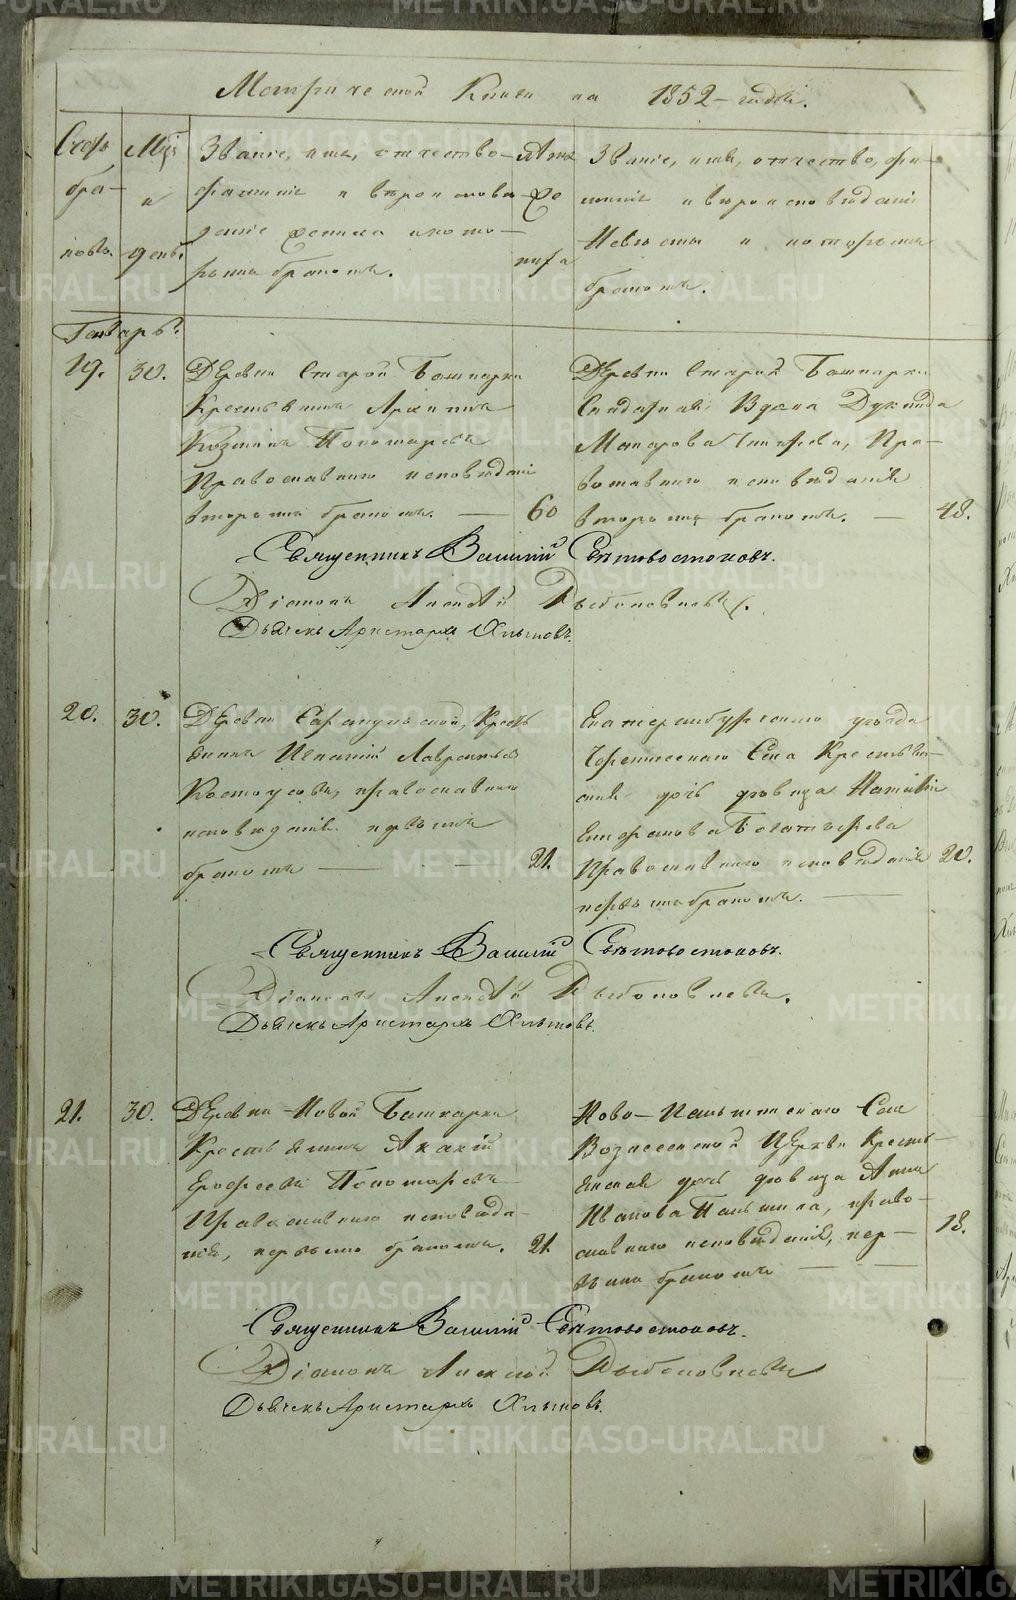 Метрической Книги на 1852 годъ.
Счетъ бра-
ковъ.
Мцъ
и
день.
Званіе, имя, отчество
фамилія и вѣроисповѣ
даніе жениха и кото-
рымъ бракомъ.
Лета
жениха
Званіе, имя, отчество, фа-
милія и вѣроисповѣданіе
Невѣсты и которымъ
бракомъ.
Генварь.
19.
30.
Деревни Старой Башкарки
Крестьянинъ Архипъ
Козминъ Пономаревъ
Православнаго исповѣданія
вторымъ бракомъ. — 60
Деревни Старой Башкарки
Вдова
Макарова Пра-
вославнаго исповѣданія
вторымъ бракомъ. — 48.
Священникъ Василій Свѣтовостоковъ.
Діаконъ Алексѣй
Дьячекъ Аристархъ Хлыновъ.
20.
30.
Деревни Сарапульской, Кресть
янинъ Игнатій Лаврентьевъ
Костоусовъ, православнаго
исповѣданія первымъ
бракомъ — — 21.
Екатеринбургскаго уѣзда
Села Крестьян-
ская дочь дѣвица Наталія
Епифанова Богатырева
Православнаго исповѣданія 20.
первымъ бракомъ. —
Священникъ Василій Свѣтовостоковъ.
Діаконъ Алексѣй
Дьячекъ Аристархъ Хлыновъ.
21.
30.
Деревни Новой Башкарки
Крестьянинъ Акакій
Ерофеевъ Пономаревъ
Православнаго исповѣда-
нія, первымъ бракомъ. 21.
Ново-Паньшинскаго Села
Вознесенской Церкви Кресть-
янская дочь дѣвица Анна
Иванова Паньшина, право-
славнаго исповѣданія, пер- 18.
вымъ бракомъ — —
Священникъ Василій Свѣтовостоковъ.
Діаконъ Алексѣй
Дьячекъ Аристархъ Хлыновъ.
METRIKI.GASO-URAL.RU